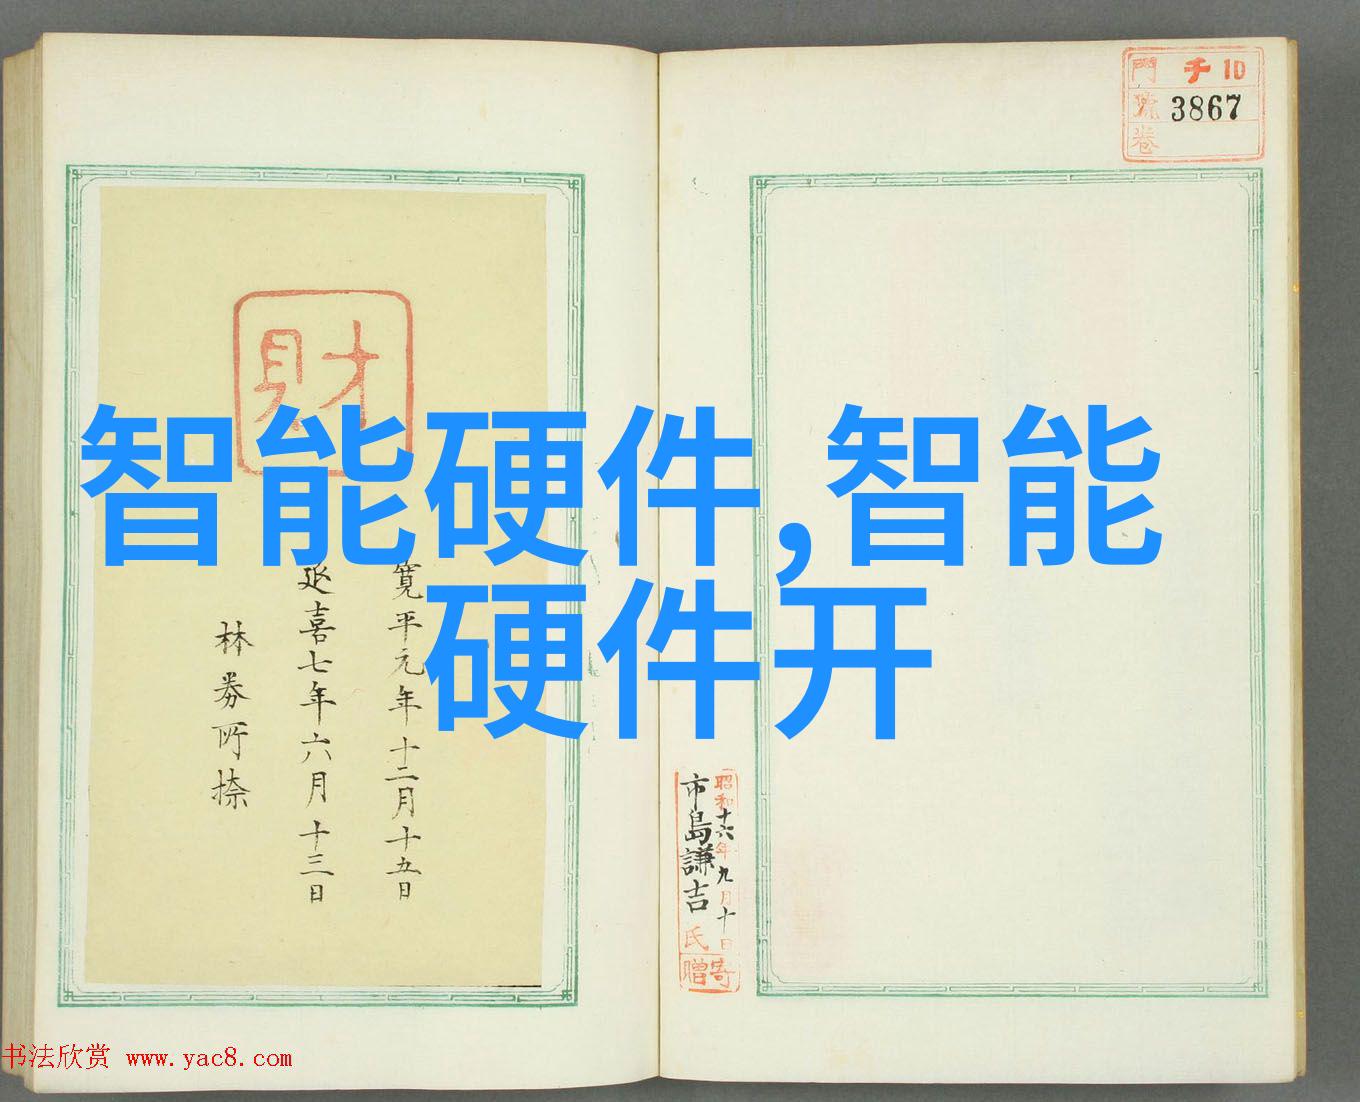 門 チ 10
號 3867
卷
財
智能硬件,智能
硬件开
寛平元年十二月十五日
延喜七年六月十三日
林券所捺
昭和十六年九月十日
市島謙吉氏
寄贈
书法欣赏 www.yac8.com